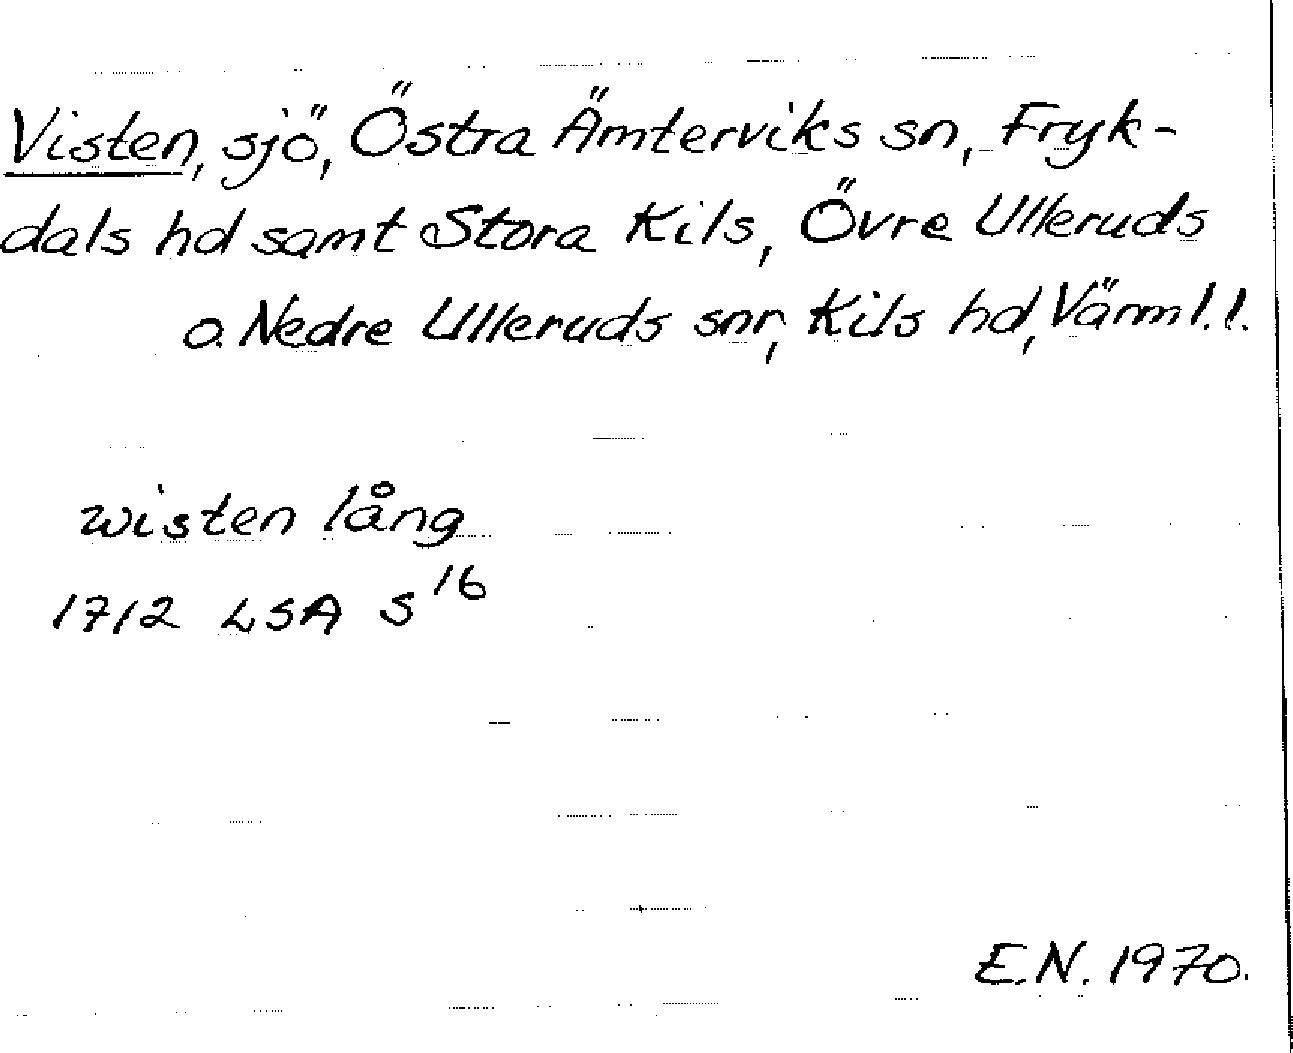 Visten, sjö, Östra Ämterviks sn, Fryk-
dals hd samt Stora Kils, Övre Ulleruds
o. Nedre Ulleruds snr, Kils hd, Värml. l.
wisten lång
1712 LSA S 16
E.N. 1970.